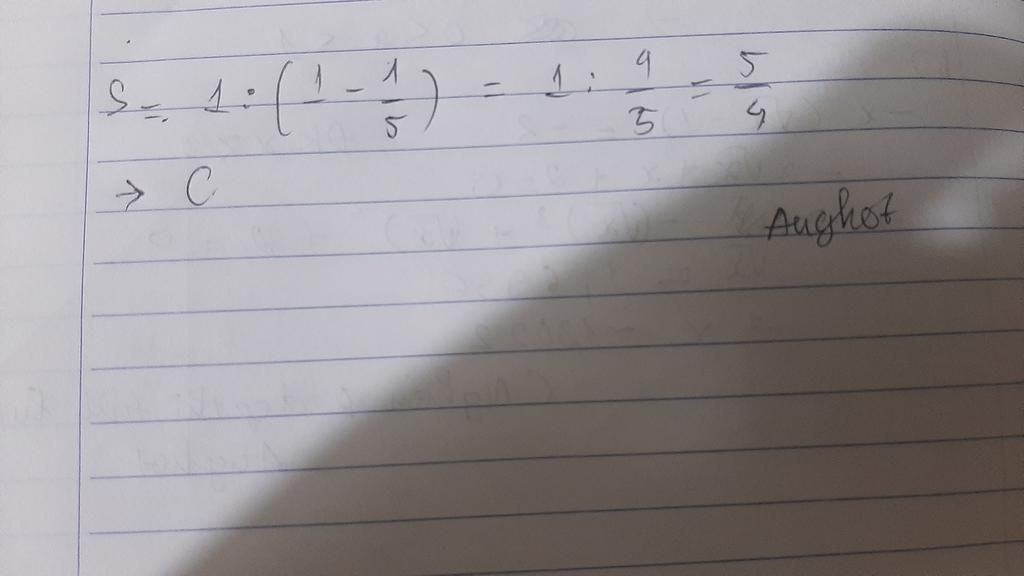 S = 1 : (1 - 1/5) = 1 : 4/5 = 5/4
→ C
Aughot